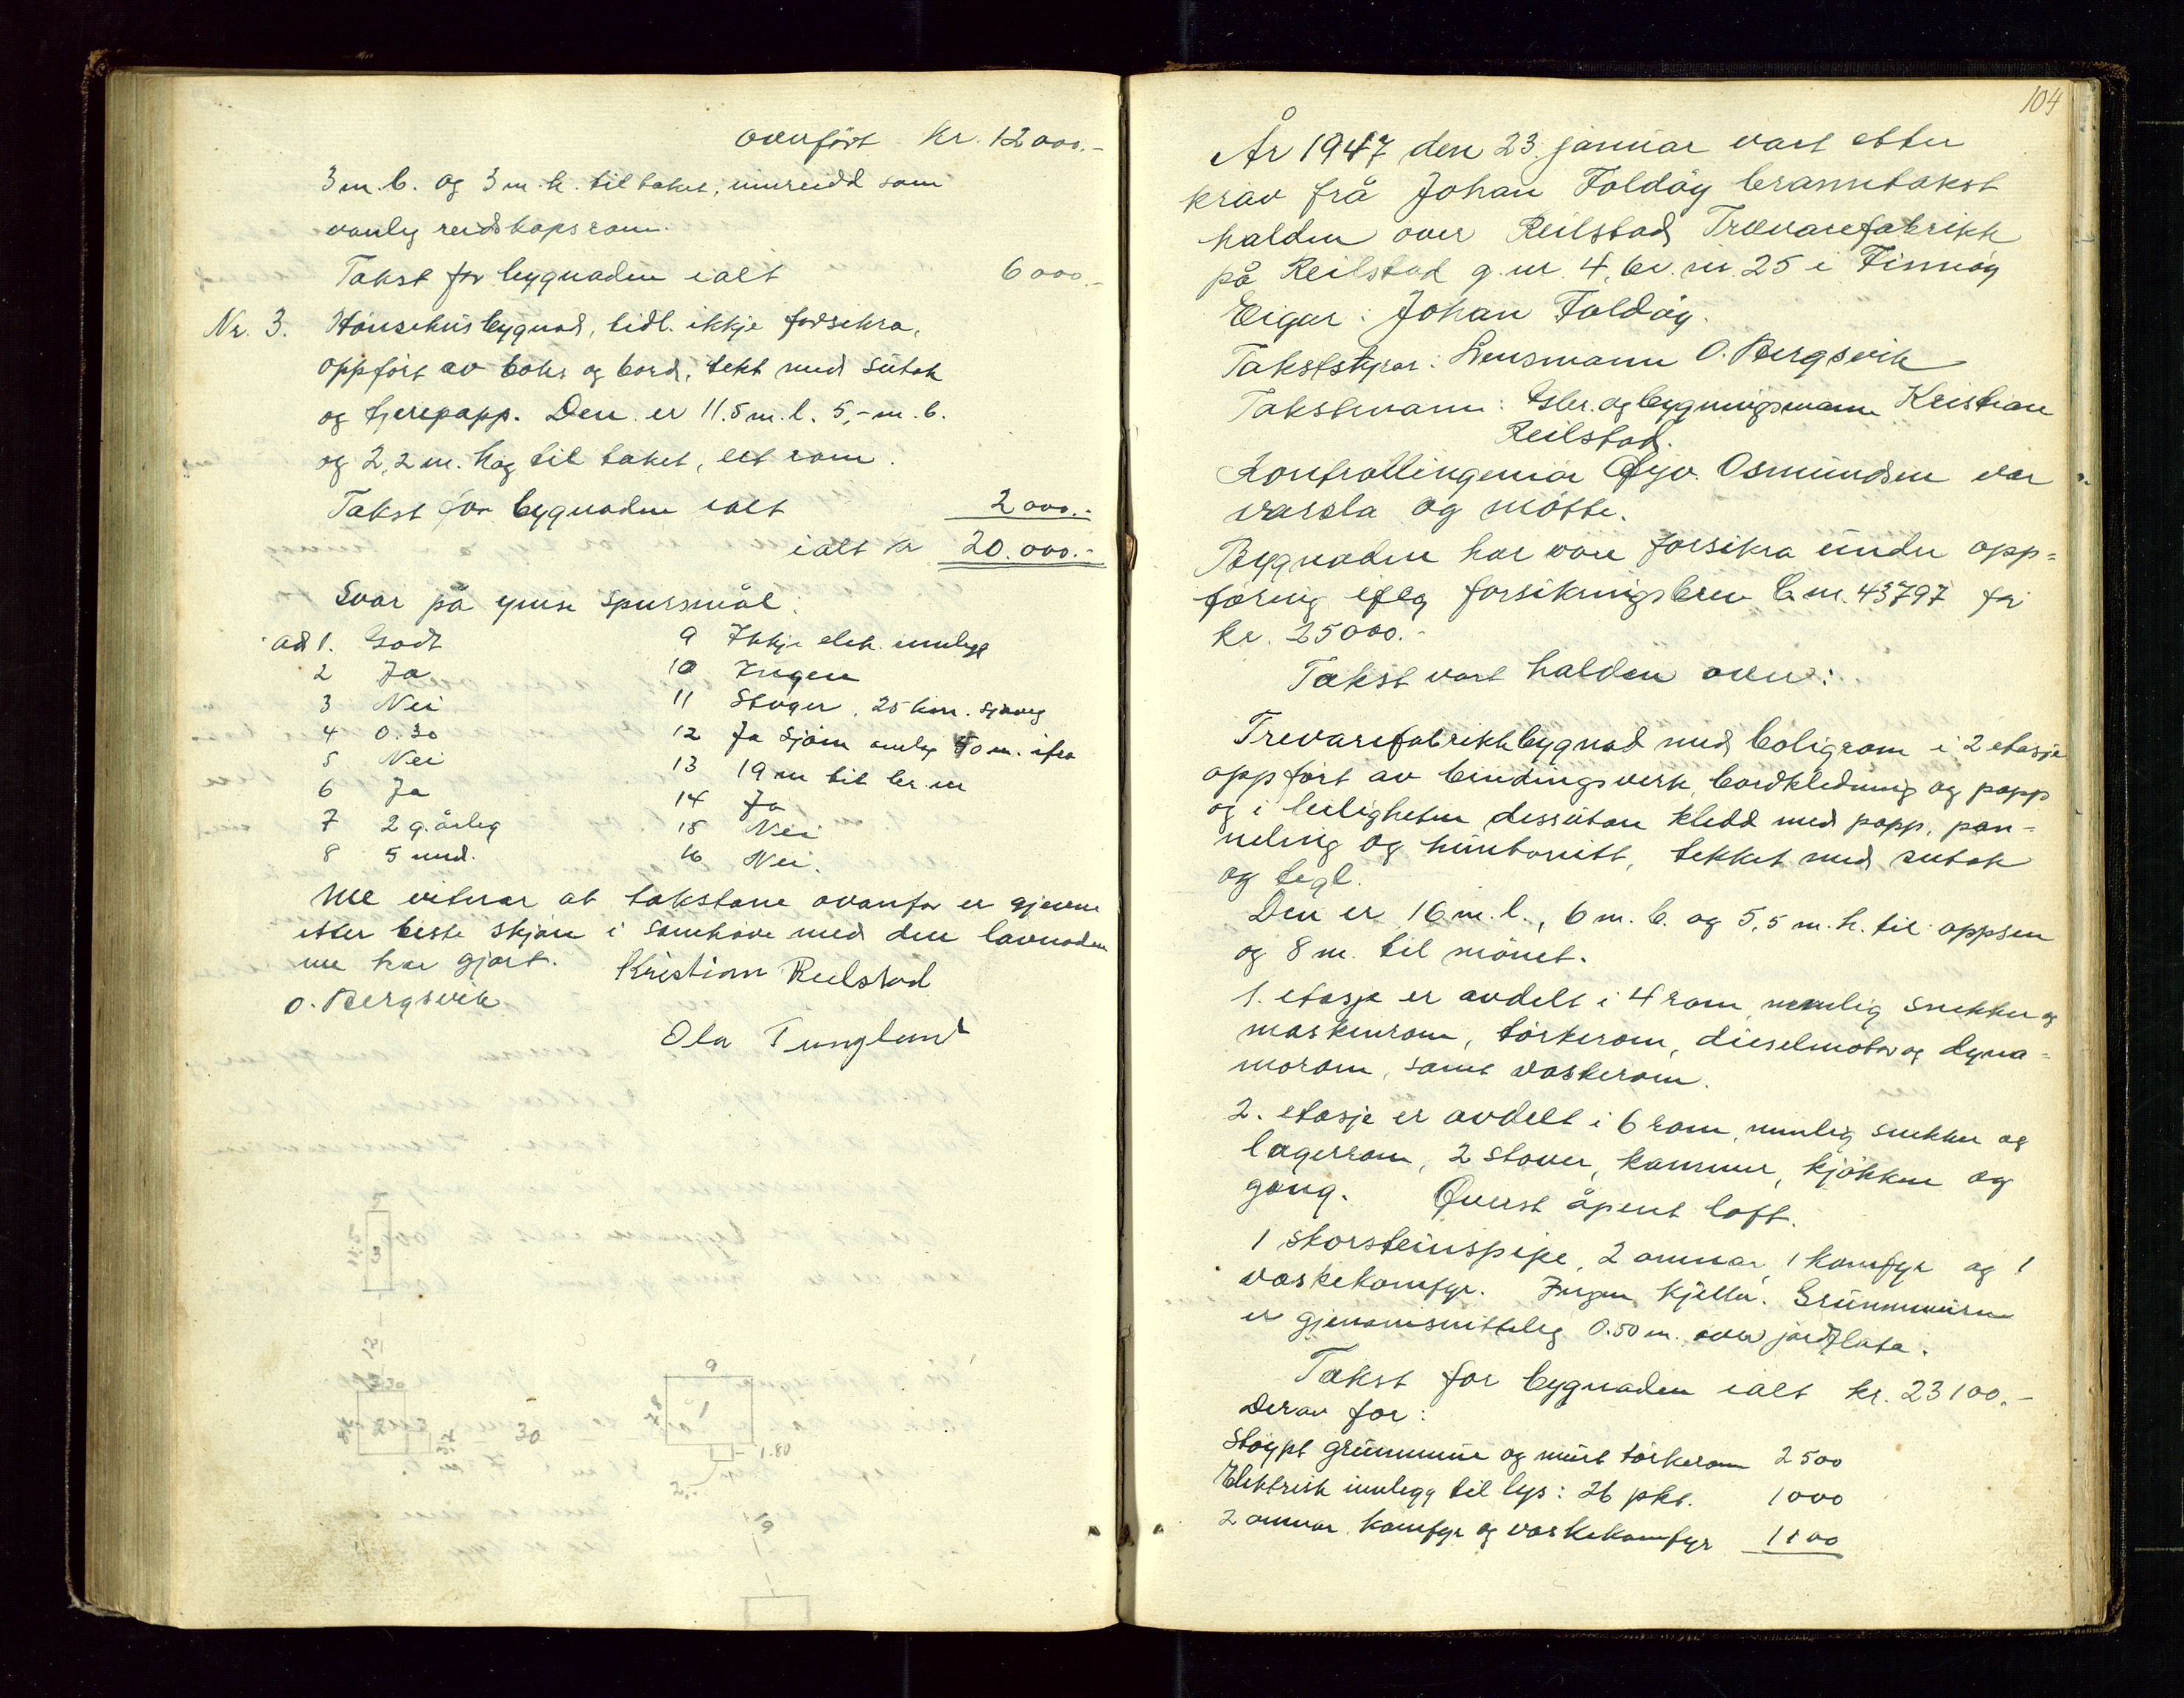 overført kr. 12000.-
3 m. b. og 3 m. h. til taket, innreidd som
vanleg reidskapsrom.
Takst for bygnaden ialt 6000.-
Nr. 3. Hønsehusbygnad, tidl. ikkje forsikra,
oppført av boks og bord, tekt med sutak
og tjerepapp. Den er 11.5 m. l. 5,- m. b.
og 2,2 m. høg til taket, eit rom.
Takst for bygnaden ialt 2000.-
ialt kr 20.000.-
Svar på ymse spursmål:
ad 1. Godt
2 Ja
3 Nei
4 0.30
5 Nei
6 Ja
7 2 g. årleg
8 5 und.
9 Ikkje elek. innlegg
10 Ingen
11 Stvgr. 25 km. sjøveg
12 Ja Sjøen omlag 40 m. ifrå
13 19 m til br. nr
14 Ja
15 Nei
16 Nei.
Me vitnar at takstane ovanfor er gjevne
etter beste skjøn i samhøve med den lovnaden
me har gjort. Kristian Reilstad
O. Bergsvik
Ola Tungland
9
1
1.80
2
30
3
104
År 1947 den 23. januar vart etter
krav frå Johan Foldøy branntakst
halden over Reilstad Trævarefabrikk
på Reilstad g. nr. 4, br. nr. 25 i Finnøy
Eigar: Johan Foldøy.
Takststyrar: Lensmann O. Bergsvik
Takstmann: Gbr. og bygningsmann Kristian
Reilstad.
Kontrollingeniør Øyv. Osmundsen var
varsla og møtte.
Bygnaden har vore forsikra under opp=
føring ifylg forsikringsbrev B. nr. 43797 for
kr. 25000.-
Takst vart halden over:
Trevarefabrikkbygnad med boligrom i 2 etasje
oppført av bindingsverk, bordkledning og papp
og i leiligheten dessutan kledd med papp, pan-
neling og huntonitt, tekket med sutak
og tegl.
Den er 16 m. l., 6 m. b. og 5,5 m. h. til oppsen
og 8 m. til mønet.
1. etasje er avdelt i 4 rom, nemlig snekker og
maskinrom, tørkerom, dieselmotor og dyna=
morom, samt vaskerom.
2. etasje er avdelt i 6 rom, nemlig snekker og
lagerrom, 2 stover, kammer, kjøkken og
gang. Øverst åpent loft.
1 skorsteinspipe, 2 omnar, 1 komfyr og 1
vaskekomfyr. Ingen kjeller. Grunnmuren
er gjenomsnittelig 0.50 m. over jordflata.
Takst for bygnaden ialt kr. 23100.-
Derav for:
Støypt grunnmur og murt tørkerom 2500
Elektrisk innlegg til lys: 26 pkt. 1000
2 omnar, komfyr og vaskekomfyr 1100